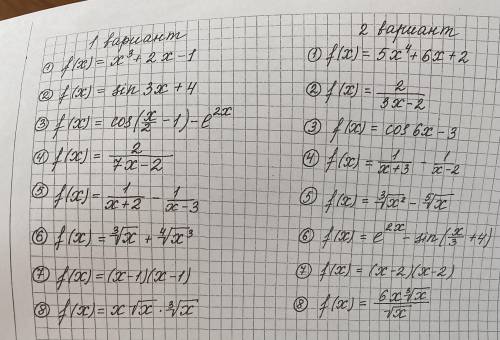 1 вариант
① f(x) = x³ + 2x - 1
② f(x) = sin 3x + 4
③ f(x) = cos(x/2 - 1) - e^{2x}
④ f(x) = 2/(7x - 2)
⑤ f(x) = 1/(x + 2) - 1/(x - 3)
⑥ f(x) = ∛x + ∜x³
⑦ f(x) = (x - 1)(x - 1)
⑧ f(x) = x√x · ∛x
2 вариант
① f(x) = 5x⁴ + 6x + 2
② f(x) = 2/(3x - 2)
③ f(x) = cos 6x - 3
④ f(x) = 1/(x + 3) - 1/(x - 2)
⑤ f(x) = ∛x² - ⁵√x
⑥ f(x) = e^{2x} - sin(x/3 + 4)
⑦ f(x) = (x - 2)(x - 2)
⑧ f(x) = 6x∛x/√x